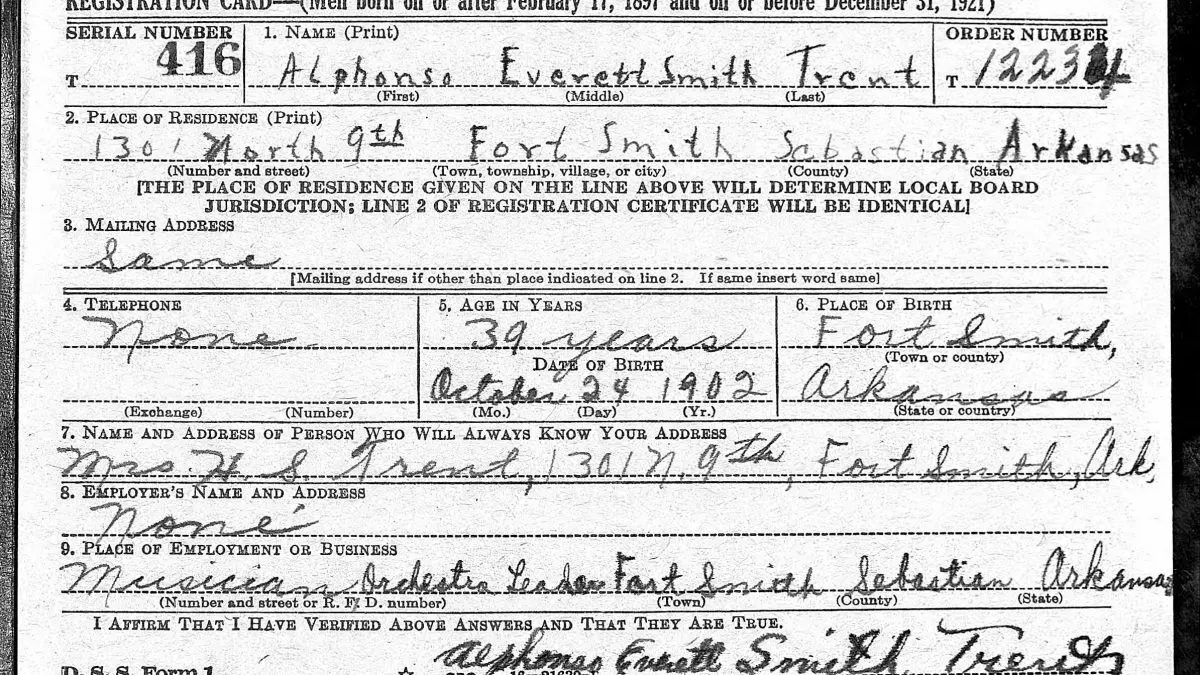 REGISTRATION CARD—(Men born on or after February 17, 1897 and on or before December 31, 1921)
SERIAL NUMBER 1. NAME (Print) ORDER NUMBER
T 416 Alphonso Everett Smith Trent T 12234
(First) (Middle) (Last)
2. PLACE OF RESIDENCE (Print)
1301 North 9th Fort Smith Sebastian Arkansas
(Number and street) (Town, township, village, or city) (County) (State)
[THE PLACE OF RESIDENCE GIVEN ON THE LINE ABOVE WILL DETERMINE LOCAL BOARD
JURISDICTION; LINE 2 OF REGISTRATION CERTIFICATE WILL BE IDENTICAL]
3. MAILING ADDRESS
Same
[Mailing address if other than place indicated on line 2. If same insert word same]
4. TELEPHONE 5. AGE IN YEARS 6. PLACE OF BIRTH
None 39 years Fort Smith,
DATE OF BIRTH (Town or county)
October 24 1902 Arkansas
(Exchange) (Number) (Mo.) (Day) (Yr.) (State or country)
7. NAME AND ADDRESS OF PERSON WHO WILL ALWAYS KNOW YOUR ADDRESS
Mrs. H. S. Trent, 1301 N. 9th, Fort Smith, Ark,
8. EMPLOYER'S NAME AND ADDRESS
None
9. PLACE OF EMPLOYMENT OR BUSINESS
Musician Orchestra Leader Fort Smith Sebastian Arkansas
(Number and street or R. F. D. number) (Town) (County) (State)
I AFFIRM THAT I HAVE VERIFIED ABOVE ANSWERS AND THAT THEY ARE TRUE.
Alphonso Everett Smith Trent
D. S. S. Form 1